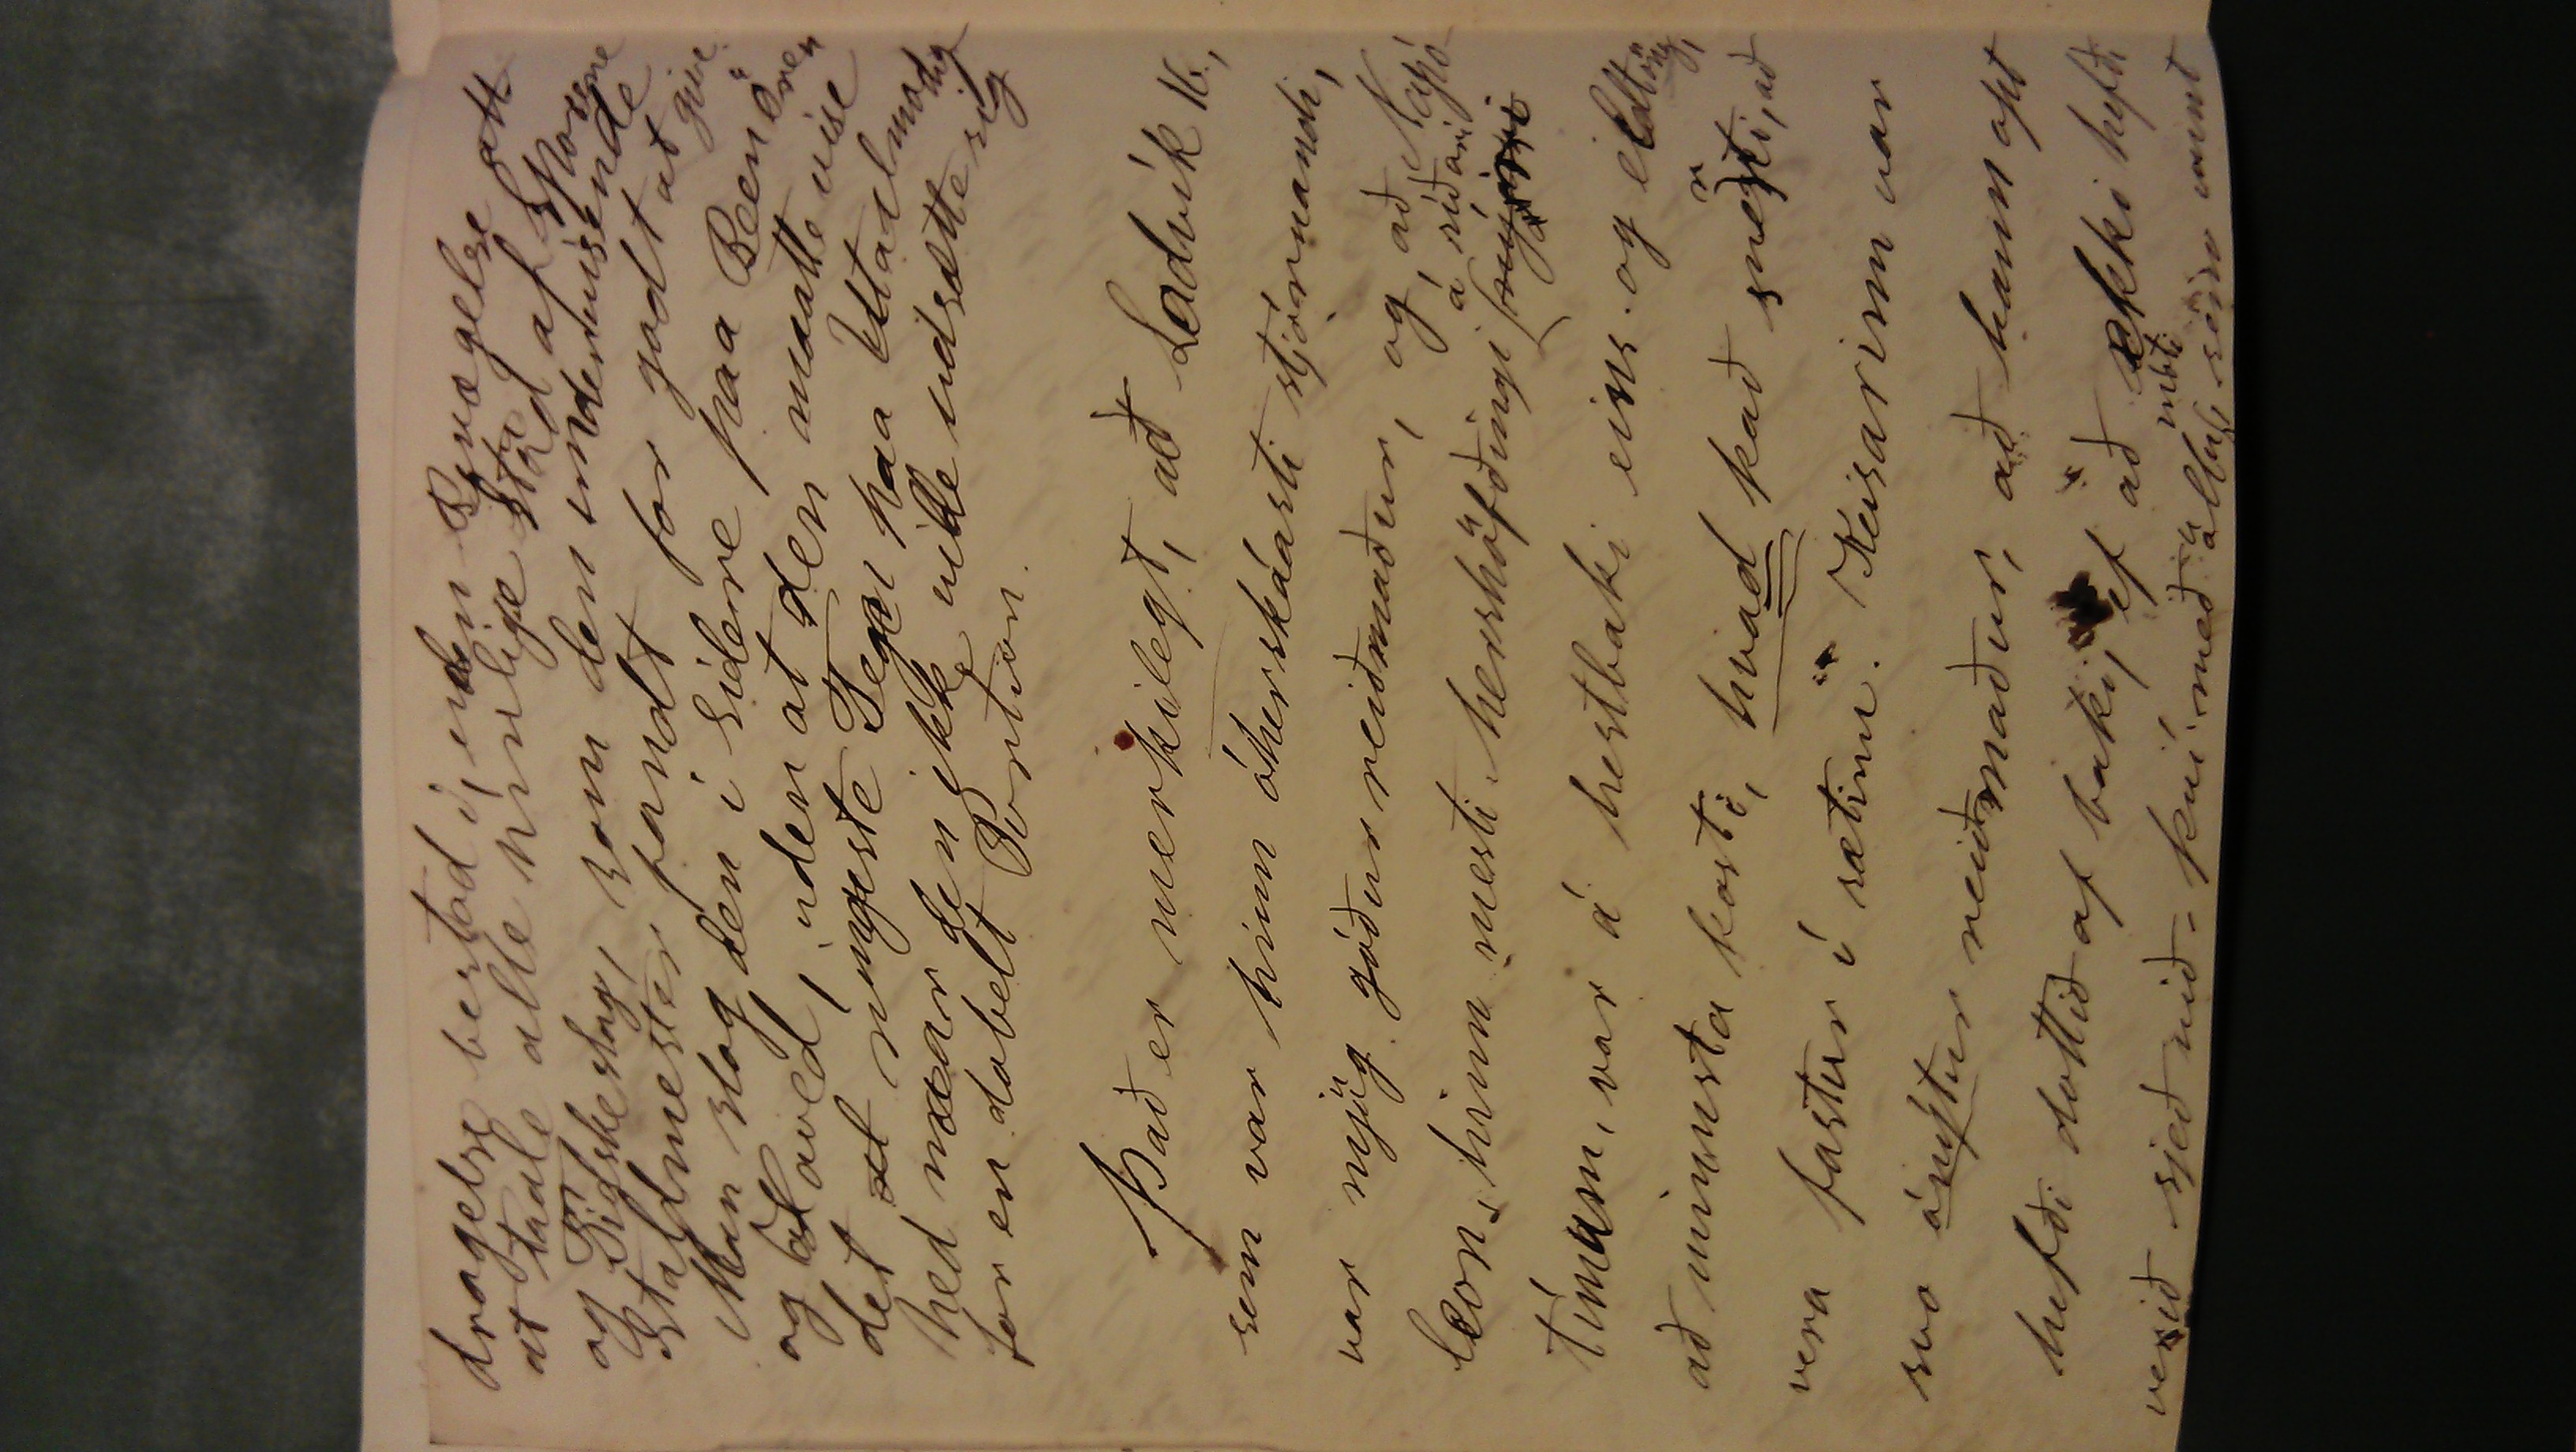 dragelse bestod i, en den Bevægelse satt
at taale alle pinlige Stød af Sporene
og Pidskeslag, som den undervisende
Staldmester fandt for godt at give.
Man slog den i Sidene paa Beenene
og Hoved, uden at den maatte vise
det ringeste Tegn paa Utaalmodig
hed naar den ikke vilde udsætte sig
for en dobelt Portion.
Það er merkilegt, að Loðvík 16.,
sem var hinn óherskáasti stjórnandi,
var mjög góður reiðmaður, og að Napó
leon, hinn mesti hershöfðingi á síðari
tímum, var á hestbaki eins og eldtöng,
að minnsta kosti, hvað það snerti, að
vera fastur í sætinu. Keisarinn var
svo ónýtur reiðmaður, að hann opt
hefði dottið af baki, ef að ekki hefði
verið sjeð við því með öllu móti sem unnt